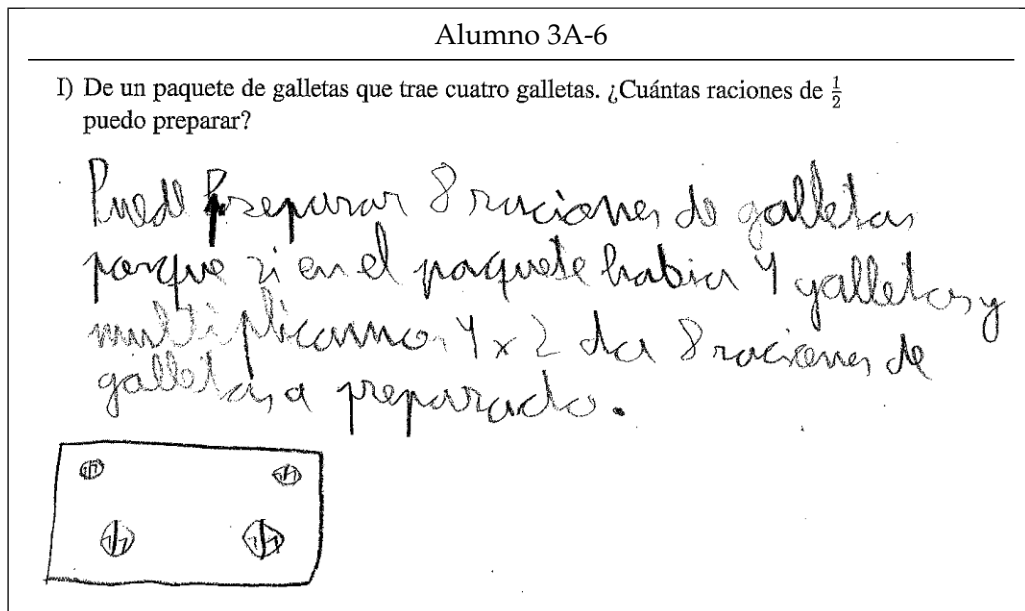 Alumno 3A-6
I) De un paquete de galletas que trae cuatro galletas. ¿Cuántas raciones de 1/2
puedo preparar?
Puede Preparar 8 raciones de galletas
porque si en el paquete habia 4 galletas y
multiplicamos 4 x 2 da 8 raciones de
galletas a preparado.